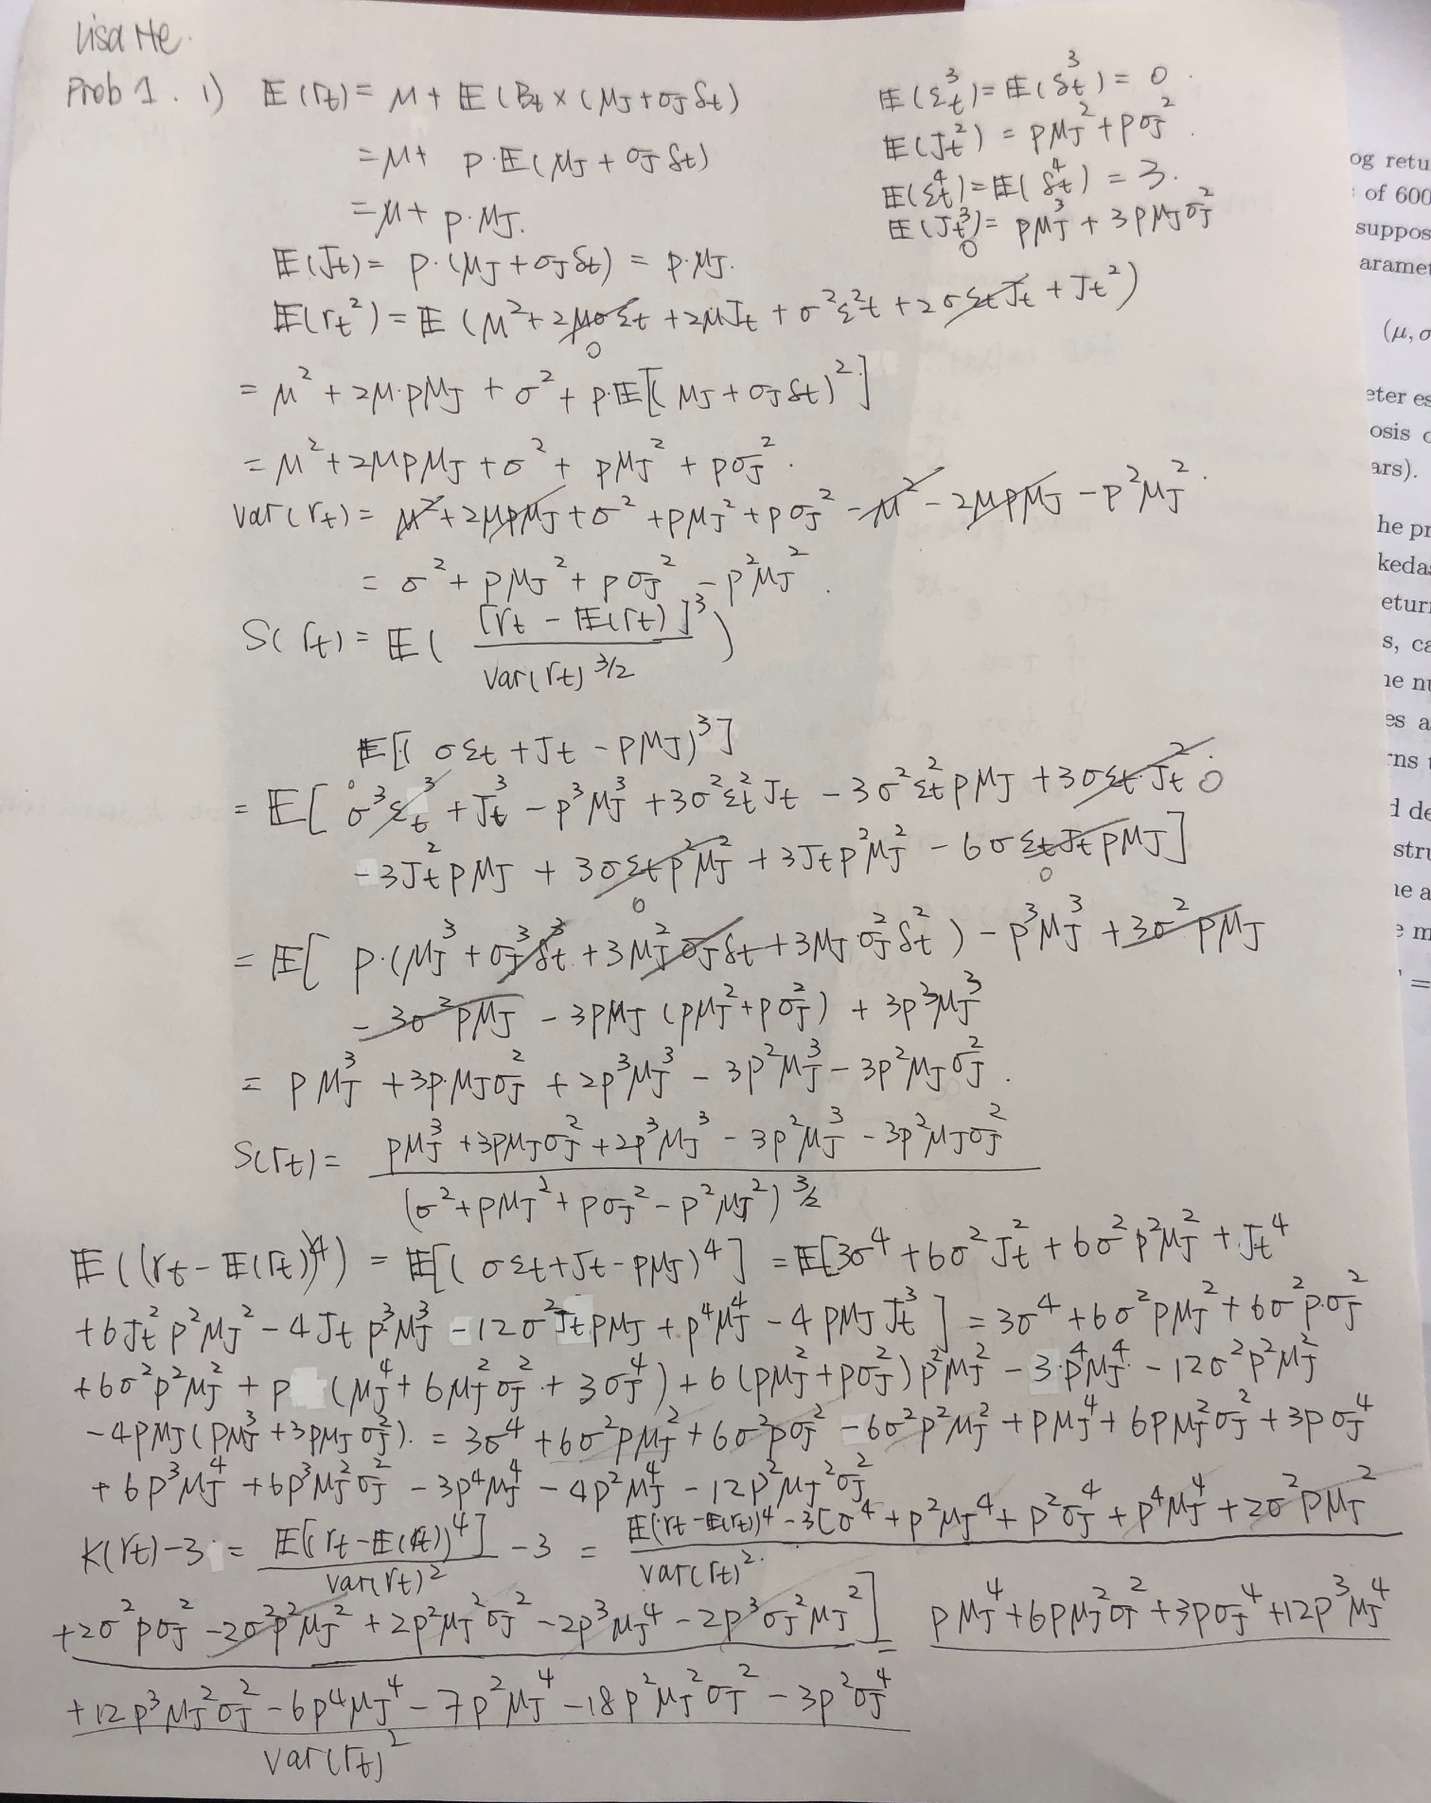 Lisa He.
Prob 1. 1) E(r_t) = μ + E(B_t × (μ_J + σ_J δ_t)
= μ + p·E(μ_J + σ_J δ_t)
= μ + p·μ_J.
E(ε_t^3) = E(δ_t^3) = 0.
E(J_t^2) = pμ_J^2 + pσ_J^2.
E(ε_t^4) = E(δ_t^4) = 3.
E(J_t^3) = pμ_J^3 + 3pμ_Jσ_J^2
E(J_t) = p·(μ_J + σ_J δ_t) = p·μ_J.
E(r_t^2) = E(μ^2 + 2μσε_t + 2μJ_t + σ^2ε^2t + 2σε_tJ_t + J_t^2)
0 0
= μ^2 + 2μ·pμ_J + σ^2 + p·E[(μ_J + σ_J δ_t)^2]
= μ^2 + 2μpμ_J + σ^2 + pμ_J^2 + pσ_J^2.
var(r_t) = μ^2 + 2μpμ_J + σ^2 + pμ_J^2 + pσ_J^2 - μ^2 - 2μpμ_J - p^2μ_J^2.
= σ^2 + pμ_J^2 + pσ_J^2 - p^2μ_J^2.
S(r_t) = E( [r_t - E(r_t)]^3 / var(r_t)^{3/2} )
E[(σε_t + J_t - pμ_J)^3]
= E[ σ^3ε_t^3 + J_t^3 - p^3μ_J^3 + 3σ^2ε_t^2J_t - 3σ^2ε_t^2pμ_J + 3σε_t·J_t^2 0
- 3J_t^2pμ_J + 3σε_tp^2μ_J^2 + 3J_tp^2μ_J^2 - 6σε_tJ_tpμ_J]
0 0
= E[ p·(μ_J^3 + σ_J^3δ_t^3 + 3μ_J^2σ_Jδ_t + 3μ_Jσ_J^2δ_t^2) - p^3μ_J^3 + 3σ^2pμ_J
- 3σ^2pμ_J - 3pμ_J(pμ_J^2 + pσ_J^2) + 3p^3μ_J^3
= pμ_J^3 + 3p·μ_Jσ_J^2 + 2p^3μ_J^3 - 3p^2μ_J^3 - 3p^2μ_Jσ_J^2.
S(r_t) = pμ_J^3 + 3pμ_Jσ_J^2 + 2p^3μ_J^3 - 3p^2μ_J^3 - 3p^2μ_Jσ_J^2
(σ^2 + pμ_J^2 + pσ_J^2 - p^2μ_J^2)^{3/2}
E((r_t - E(r_t))^4) = E[(σε_t + J_t - pμ_J)^4] = E[3σ^4 + 6σ^2J_t^2 + 6σ^2p^2μ_J^2 + J_t^4
+ 6J_t^2p^2μ_J^2 - 4J_tp^3μ_J^3 - 12σ^2J_tpμ_J + p^4μ_J^4 - 4pμ_JJ_t^3] = 3σ^4 + 6σ^2pμ_J^2 + 6σ^2p·σ_J^2
+ 6σ^2p^2μ_J^2 + p(μ_J^4 + 6μ_J^2σ_J^2 + 3σ_J^4) + 6(pμ_J^2 + pσ_J^2)p^2μ_J^2 - 3·p^4μ_J^4 - 12σ^2p^2μ_J^2
- 4pμ_J(pμ_J^3 + 3pμ_Jσ_J^2). = 3σ^4 + 6σ^2pμ_J^2 + 6σ^2pσ_J^2 - 6σ^2p^2μ_J^2 + pμ_J^4 + 6pμ_J^2σ_J^2 + 3pσ_J^4
+ 6p^3μ_J^4 + 6p^3μ_J^2σ_J^2 - 3p^4μ_J^4 - 4p^2μ_J^4 - 12p^2μ_J^2σ_J^2
K(r_t) - 3 = E[(r_t - E(r_t))^4] / var(r_t)^2 - 3 = E(r_t - E(r_t))^4 - 3[σ^4 + p^2μ_J^4 + p^2σ_J^4 + p^4μ_J^4 + 2σ^2pμ_J^2
var(r_t)^2
+ 2σ^2pσ_J^2 - 2σ^2p^2μ_J^2 + 2p^2μ_J^2σ_J^2 - 2p^3μ_J^4 - 2p^3σ_J^2μ_J^2] = pμ_J^4 + 6pμ_J^2σ_J^2 + 3pσ_J^4 + 12p^3μ_J^4
+ 12p^3μ_J^2σ_J^2 - 6p^4μ_J^4 - 7p^2μ_J^4 - 18p^2μ_J^2σ_J^2 - 3p^2σ_J^4
var(r_t)^2
og retu
of 600
suppos
aramet
(μ, σ
eter es
osis o
ars).
he pr
keda
eturn
s, ca
ne nu
es a
rns t
d de
stru
ne a
e m
=